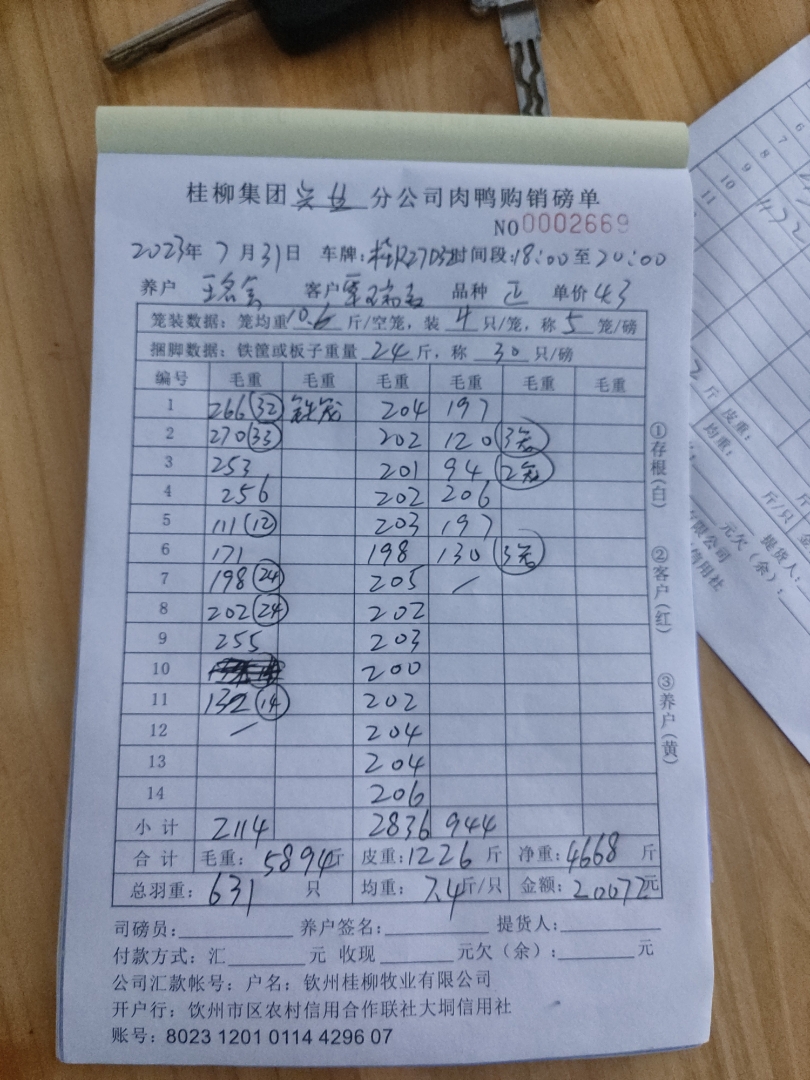 桂柳集团 兴业 分公司肉鸭购销磅单
NO 0002669
2023年 7月31日 车牌: 时间段:18:00至20:00
养户 客户 品种 正 单价 4.3
笼装数据:笼均重 10.6 斤/空笼,装 4 只/笼,称 5 笼/磅
捆脚数据:铁筐或板子重量 24 斤,称 30 只/磅
编号 毛重 毛重 毛重 毛重 毛重 毛重
1 266 (32) 铁笼 204 197
2 270 (33) 202 120 (3笼)
3 253 201 94 (2笼)
4 256 202 206
5 111 (12) 203 197
6 171 198 130 (3笼)
7 198 (24) 205 /
8 202 (24) 202
9 255 203
10 200
11 132 (14) 202
12 / 204
13 204
14 206
小计 2114 2836 944
合计 毛重:5894斤 皮重:1226斤 净重:4668斤
总羽重:631只 均重:7.4斤/只 金额:20072元
司磅员: 养户签名: 提货人:
付款方式:汇 元 收现 元欠(余): 元
公司汇款帐号:户名:钦州桂柳牧业有限公司
开户行:钦州市区农村信用合作联社大垌信用社
账号:8023 1201 0114 4296 07
①存根(白) ②客户(红) ③养户(黄)
6
7
8
9
10
11
斤 皮重:
均重:
斤/只
元欠(余):
提货人:
有限公司
信用社